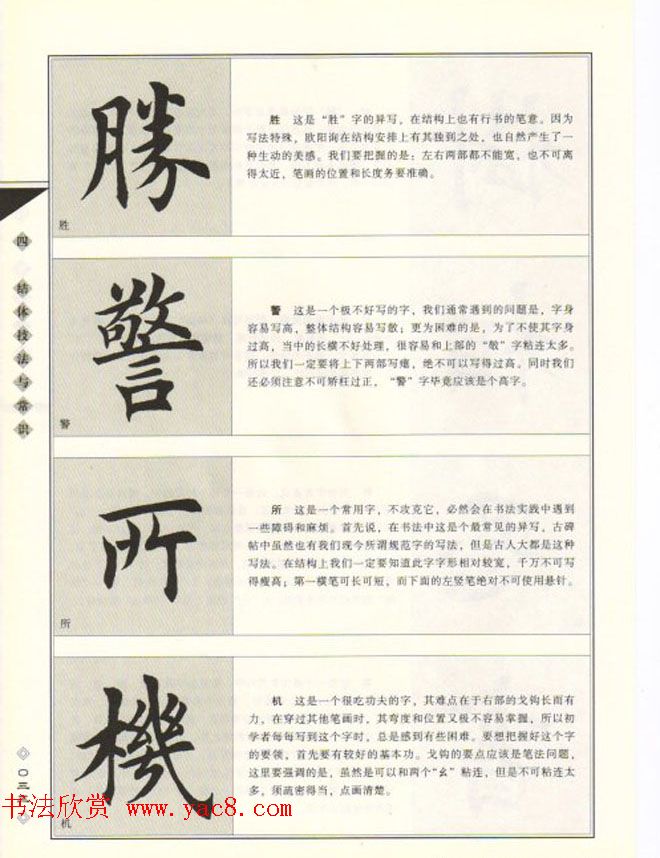 四 结体技法与常识
勝
胜
胜 这是“胜”字的异写，在结构上也有行书的笔意。因为
写法特殊，欧阳询在结构安排上有其独到之处，也自然产生了一
种生动的美感。我们要把握的是：左右两部都不能宽，也不可离
得太近，笔画的位置和长度务要准确。
警
警
警 这是一个极不好写的字，我们通常遇到的问题是，字身
容易写高，整体结构容易写散；更为困难的是，为了不使其字身
过高，当中的长横不好处理，很容易和上部的“敬”字粘连太多。
所以我们一定要将上下两部写瘪，绝不可以写得过高。同时我们
还必须注意不可矫枉过正，“警”字毕竟应该是个高字。
所
所
所 这是一个常用字，不攻克它，必然会在书法实践中遇到
一些障碍和麻烦。首先说，在书法中这是个最常见的异写，古碑
帖中虽然也有我们现今所谓规范字的写法，但是古人大都是这种
写法。在结构上我们一定要知道此字字形相对较宽，千万不可写
得瘦高；第一横笔可长可短，而下面的左竖笔绝对不可使用悬针。
機
机
机 这是一个很吃功夫的字，其难点在于右部的戈钩长而有
力，在穿过其他笔画时，其弯度和位置又极不容易掌握，所以初
学者每每写到这个字时，总是感到有些困难。要想把握好这个字
的要领，首先要有较好的基本功。戈钩的要点应该是笔法问题，
这里要强调的是，虽然是可以和两个“幺”粘连，但是不可粘连太
多，须疏密得当，点画清楚。
书法欣赏 www.yac8.com